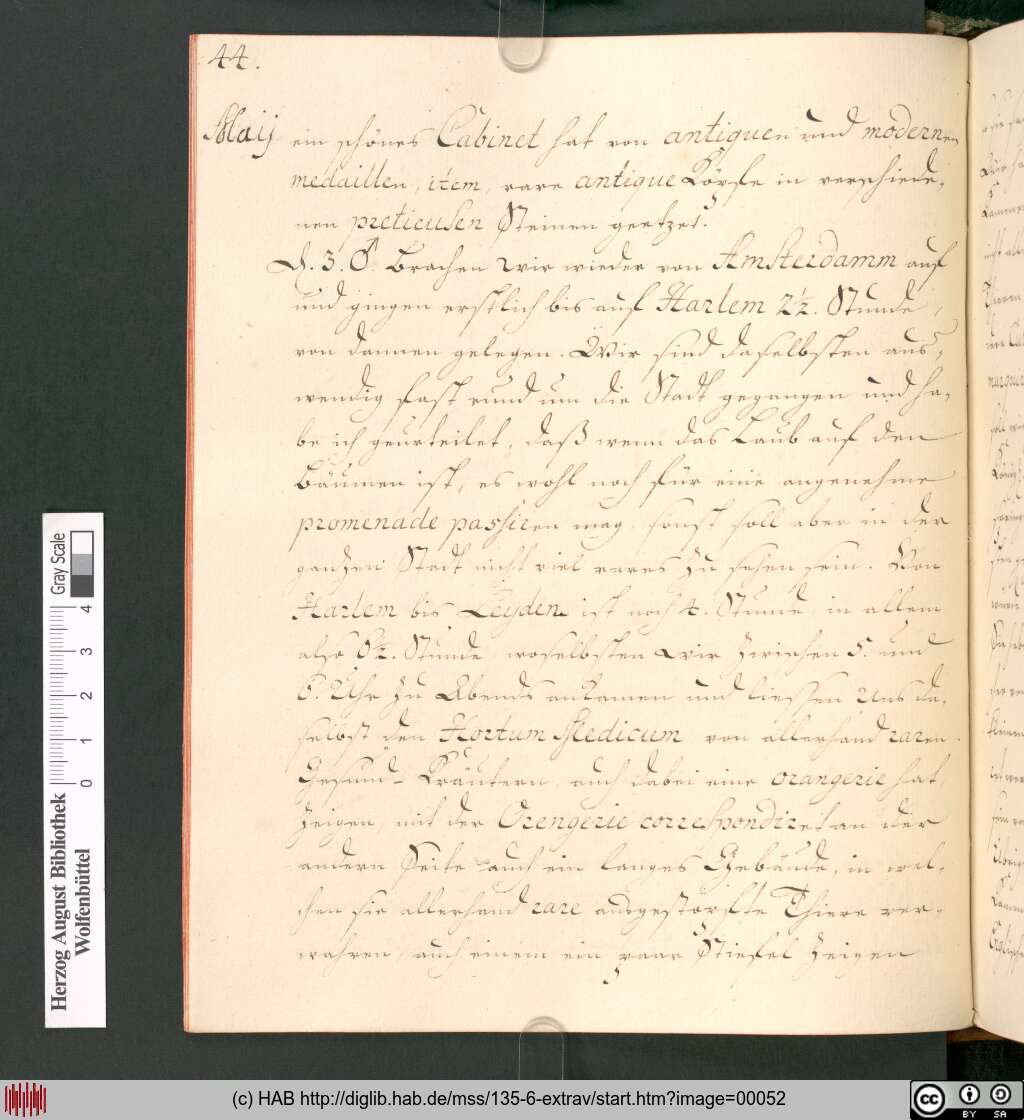 44.
Maij ein schönes Cabinet hat von antiquen und modernen
medaillen, item, rare antique Köpfe in verschiede-
nen pretieusen Steinen geetzet.
D. 3. ♂ Brachen wir wieder von Amsterdamm auf
und gingen erstlich bis auf Harlem 2½. Stunde,
von dannen gelegen. Wir sind daselbsten aus-
wendig fast rund um die Stadt gegangen und ha-
be ich geurteilet, daß wenn das Laub auf den
Bäumen ist, es wohl noch für eine angenehme
promenade passiren mag, sonst soll aber in der
ganzen Stadt nicht viel rares zu sehen sein. Von
Harlem bis Leyden ist noch 4. Stunde, in allem
also 6½. Stunde, woselbsten wir zwischen 5. und
6. Uhr zu Abends ankamen und liessen uns da-
selbst den Hortum Medicum, von allerhand raren
Gesund-Kräutern, auch dabei eine orangerie hat,
zeigen, mit der Orengerie correspondiret an der
andern Seite auch ein langes Gebäude, in wel-
chen sie allerhand rare ausgestopfte Thiere ver-
wahren, auch einem ein paar Stiefel zeigen
Gray Scale
0 1 2 3 4
Herzog August Bibliothek
Wolfenbüttel
(c) HAB http://diglib.hab.de/mss/135-6-extrav/start.htm?image=00052
cc BY SA